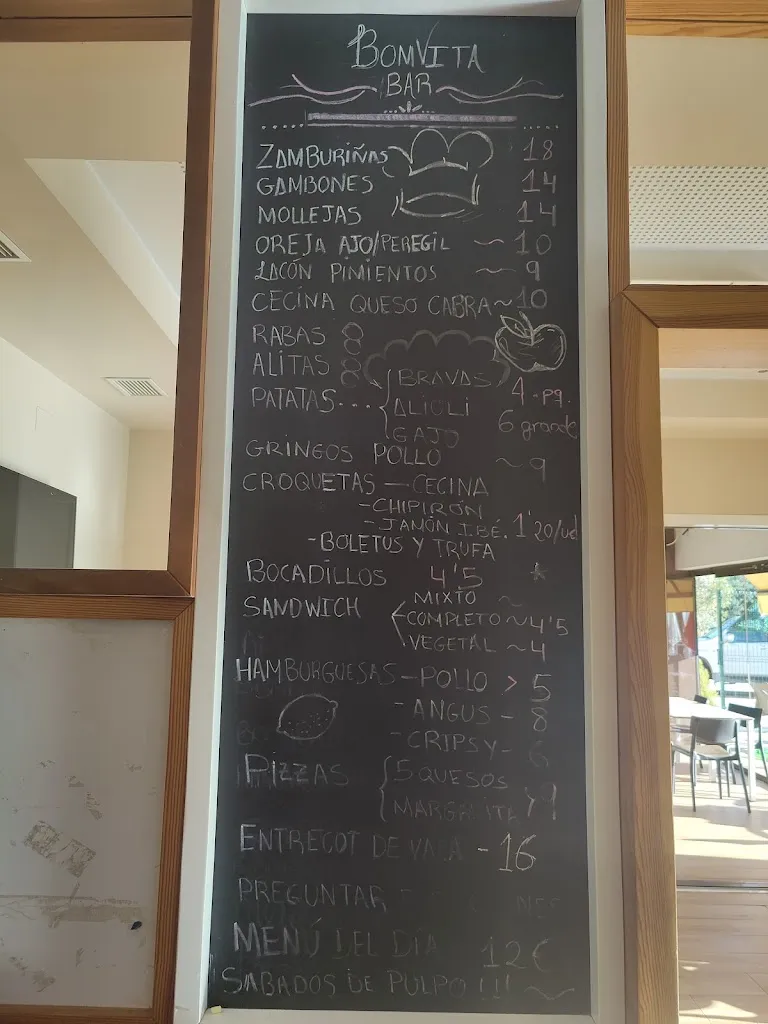 BOMVITA
BAR
ZAMBURIÑAS 18
GAMBONES 14
MOLLEJAS 14
OREJA AJO/PEREGIL ~ 10
LACÓN PIMIENTOS ~ 9
CECINA QUESO CABRA ~ 10
RABAS 8
ALITAS 8
PATATAS --- BRAVAS 4 - pq.
ALIOLI
GAJO 6 grande
GRINGOS POLLO ~ 9
CROQUETAS — CECINA
- CHIPIRÓN
- JAMÓN IBÉ. 1'20/ud
- BOLETUS Y TRUFA
BOCADILLOS 4'5 *
SANDWICH MIXTO ~
COMPLETO ~ 4'5
VEGETAL ~ 4
HAMBURGUESAS — POLLO > 5
- ANGUS - 8
- CRIPSY - 6
PIZZAS 5 QUESOS
MARGARITA 9
ENTRECOT DE VACA - 16
PREGUNTAR
MENÚ DEL DÍA 12€
SABADOS DE PULPO !!! ~